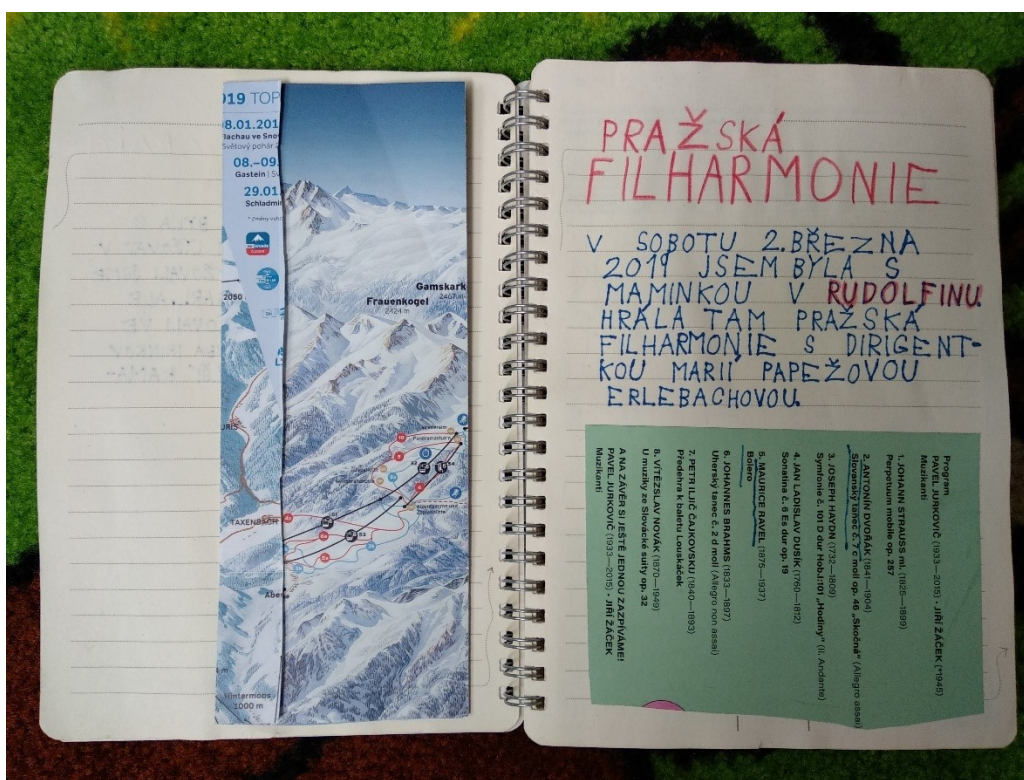 019 TOP
8.01.201
lachau ve Snov
Světový pohár
08.–09.
Gastein | Sv
29.01
Schladmi
2050
Gamskark
2467m
Frauenkogel
2424 m
TAXENBACH
Hintermoos
1000 m
PRAŽSKÁ
FILHARMONIE
V SOBOTU 2. BŘEZNA
2019 JSEM BYLA S
MAMINKOU V RUDOLFINU.
HRÁLA TAM PRAŽSKÁ
FILHARMONIE S DIRIGENT-
KOU MARIÍ PAPEŽOVOU
ERLEBACHOVOU.
Program
PAVEL JURKOVIČ (1933—2015) • JIŘÍ ŽÁČEK (*1945)
Muzikanti
1. JOHANN STRAUSS ml. (1825—1899)
Perpetuum mobile op. 257
2. ANTONÍN DVOŘÁK (1841—1904)
Slovanský tanec č. 7 c moll op. 46 „Skočná“ (Allegro assai)
3. JOSEPH HAYDN (1732—1809)
Symfonie č. 101 D dur Hob.I:101 „Hodiny“ (II. Andante)
4. JAN LADISLAV DUSÍK (1760—1812)
Sonatina č. 6 Es dur op. 19
5. MAURICE RAVEL (1875—1937)
Bolero
6. JOHANNES BRAHMS (1833—1897)
Uherský tanec č. 2 d moll (Allegro non assai)
7. PETR ILJIČ ČAJKOVSKIJ (1840—1893)
Předehra k baletu Louskáček
8. VÍTĚZSLAV NOVÁK (1870—1949)
U muziky ze Slovácké suity op. 32
A NA ZÁVĚR SI JEŠTĚ JEDNOU ZAZPÍVÁME!
PAVEL JURKOVIČ (1933—2015) • JIŘÍ ŽÁČEK
Muzikanti